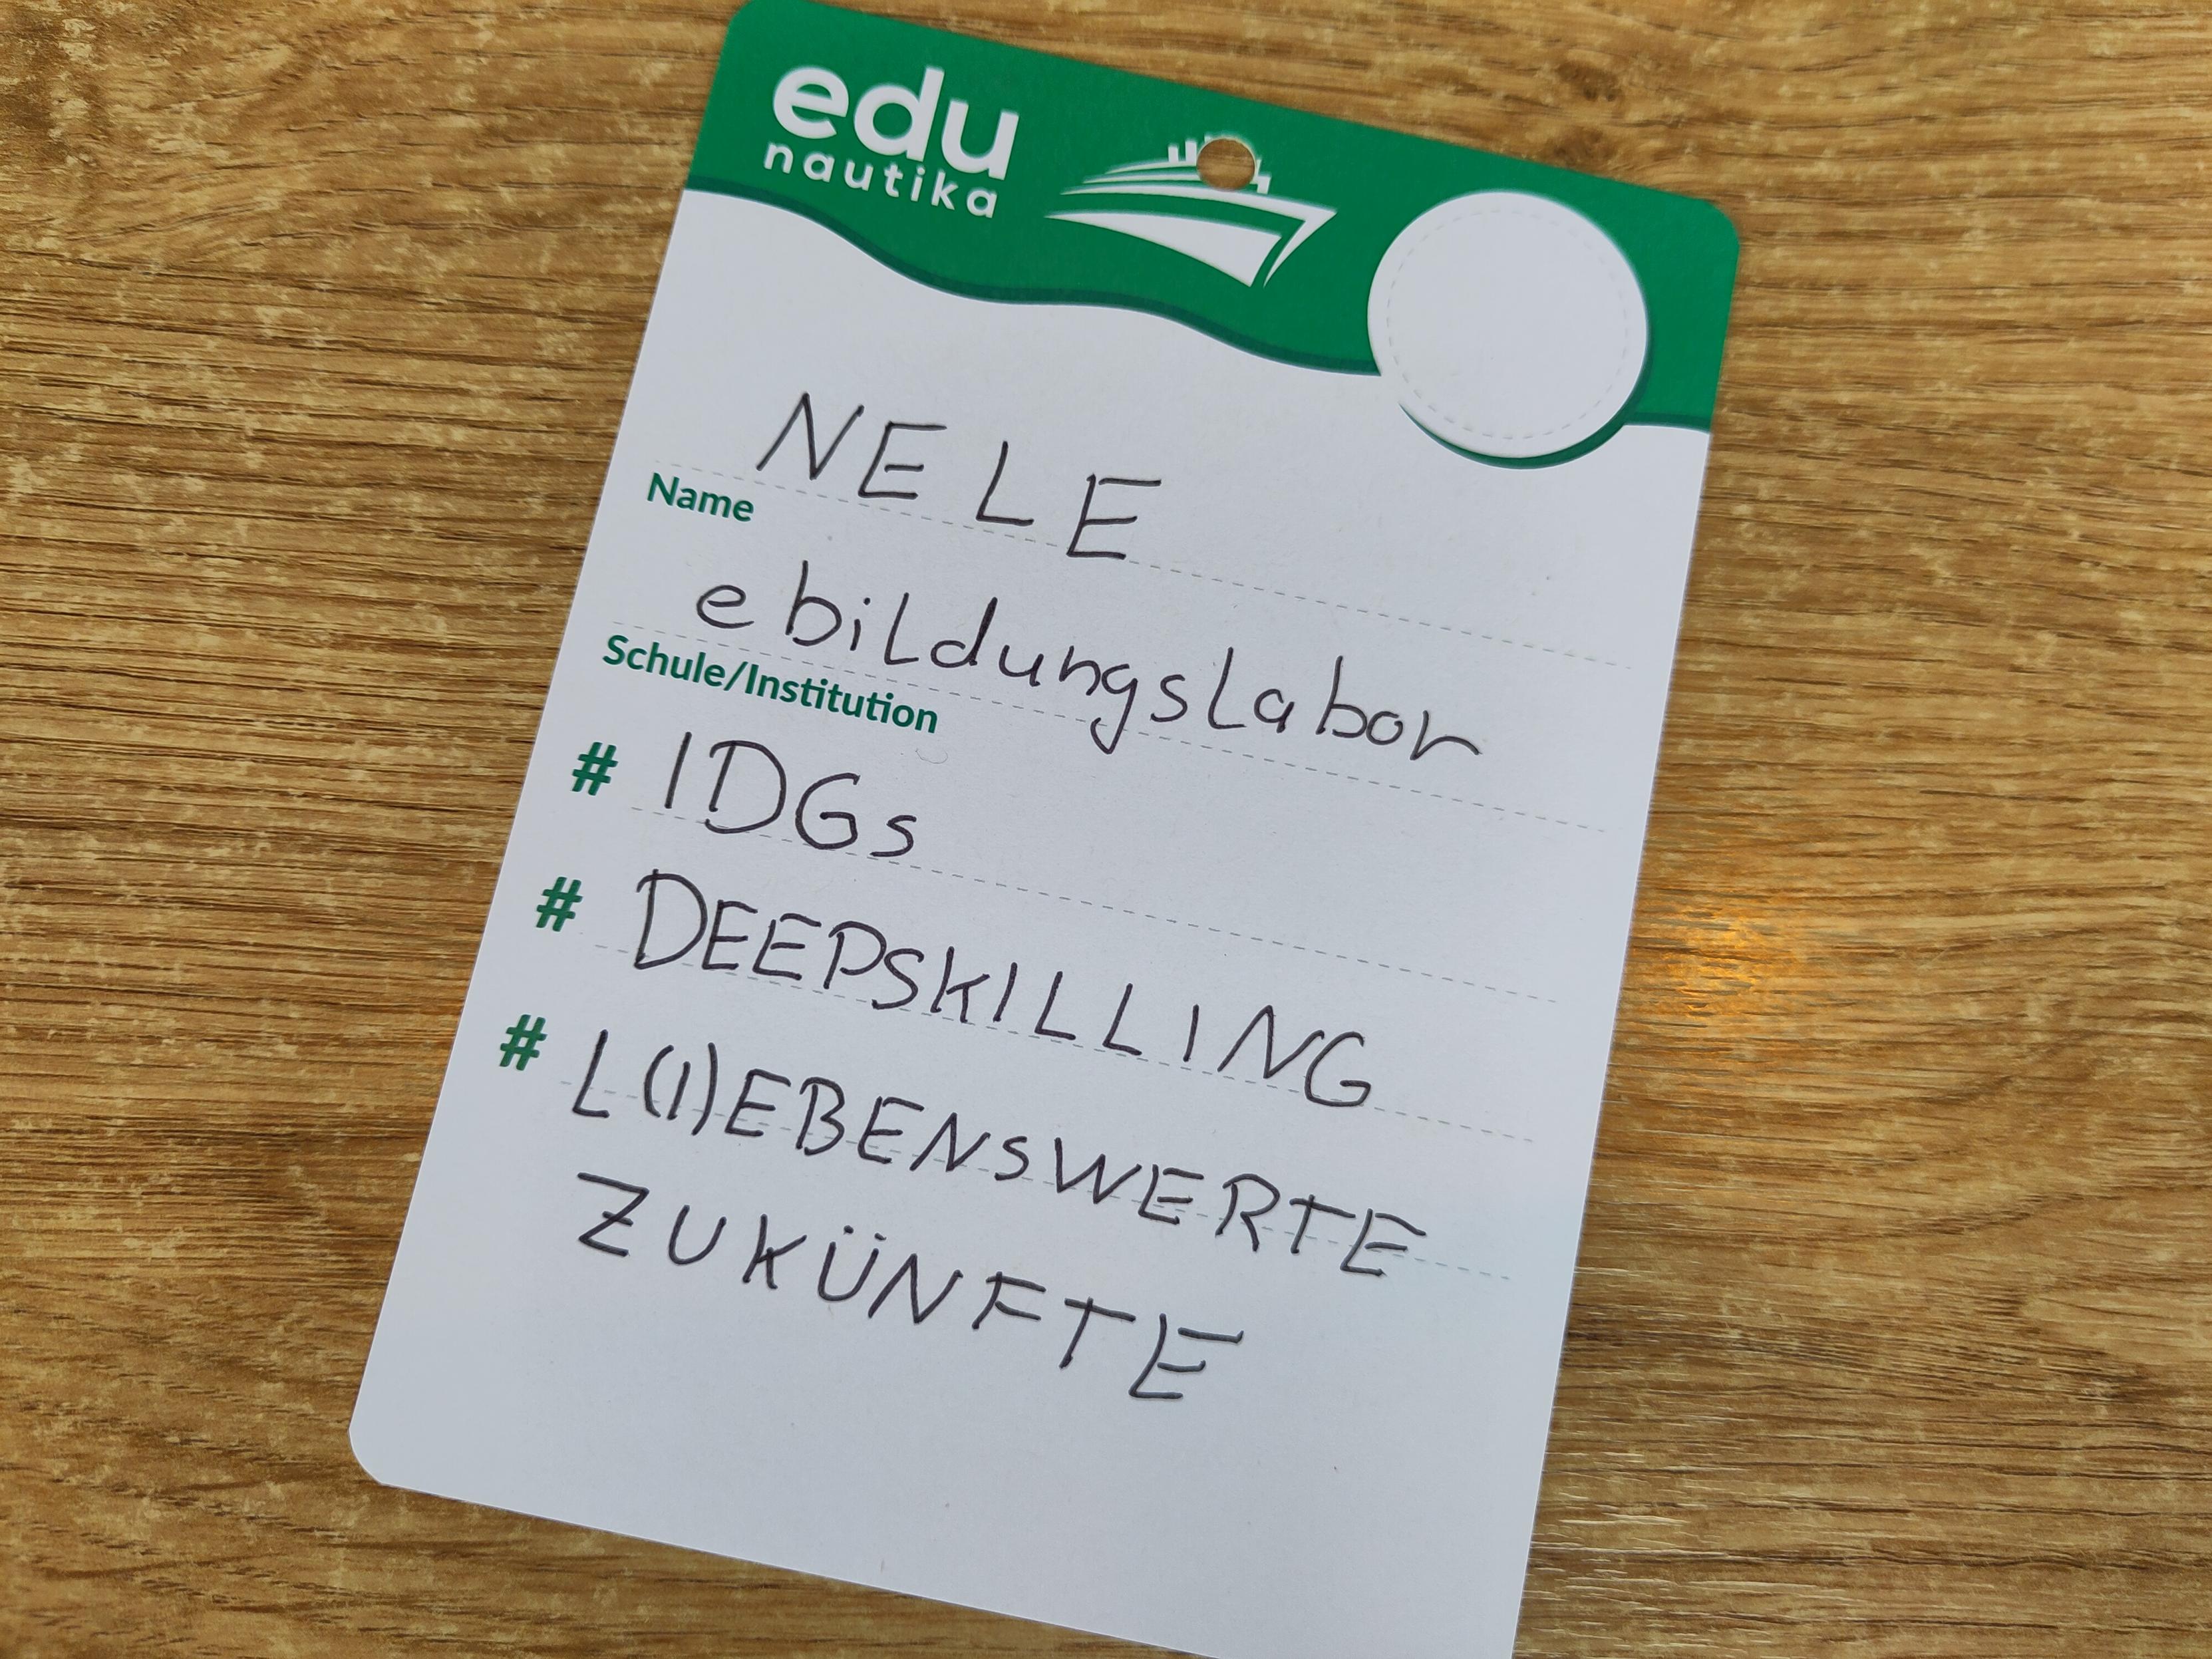 edu
nautika
NELE
Name
ebildungslabor
Schule/Institution
# IDGs
# DEEPSKILLING
# L(I)EBENSWERTE
ZUKÜNFTE